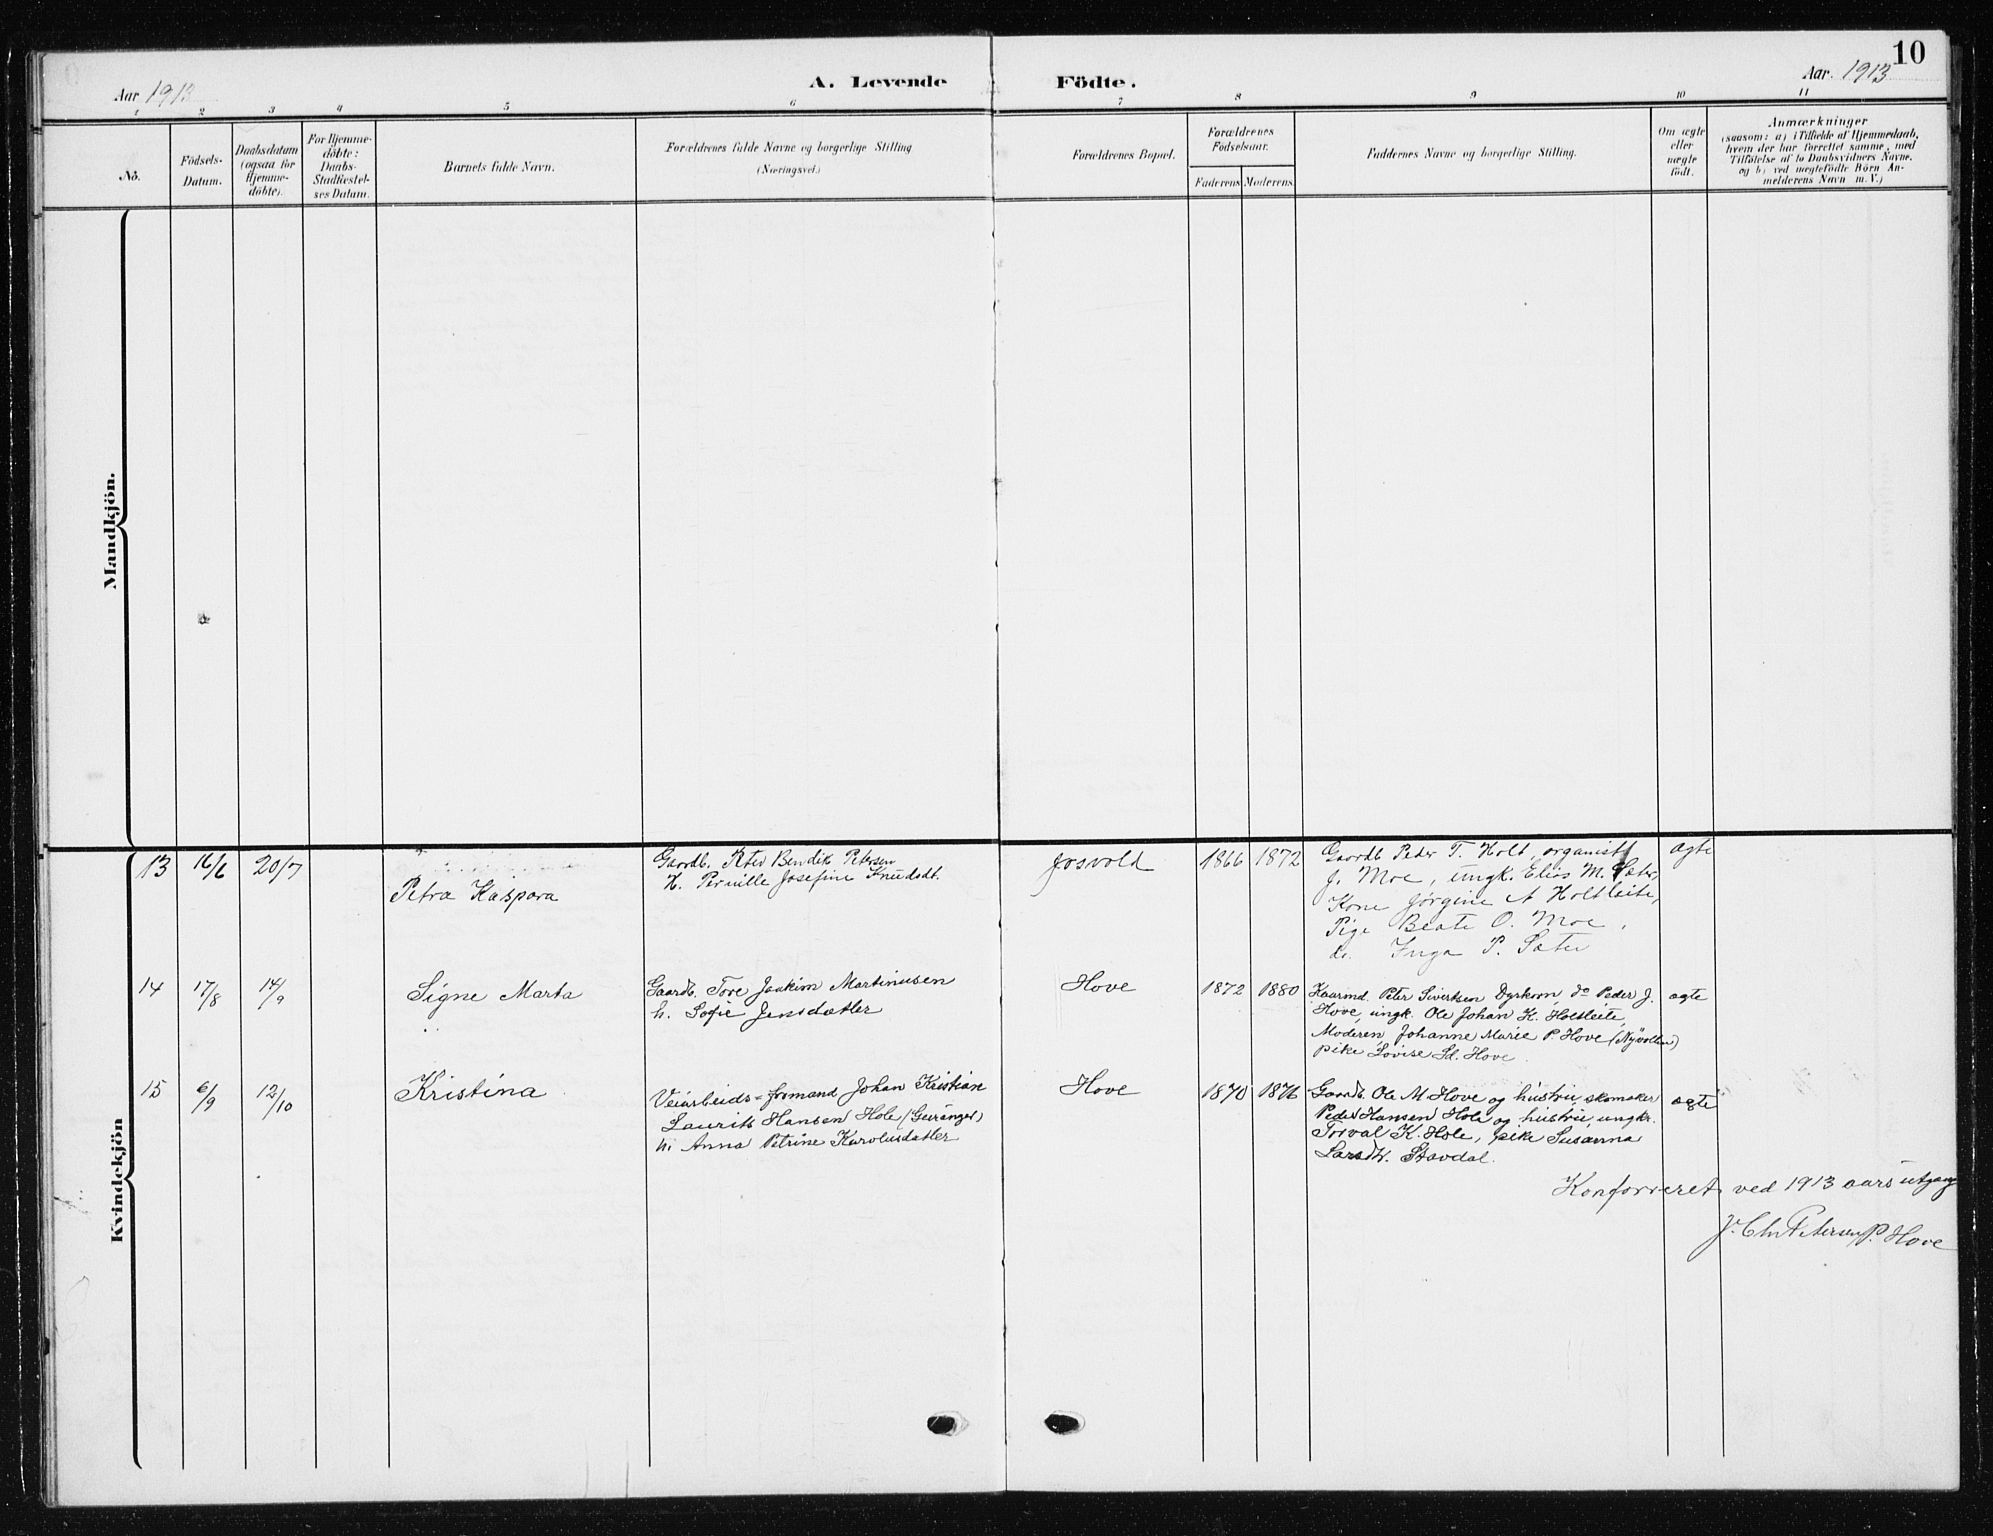 10
Aar 1913
A. Levende Födte.
Aar. 1913
1 2 3 4 5 6 7 8 9 10 11
No.
Födsels-
Datum.
Daabsdatum
(ogsaa for
Hjemme-
döbte).
For Hjemme-
döbte:
Daabs-
Stadfæstel-
ses Datum.
Barnets fulde Navn.
Forældrenes fulde Navne og borgerlige Stilling
(Næringsvei.)
Forældrenes Bopæl.
Forældrenes
Födselsaar.
Faderens Moderens
Faddernes Navne og borgerlige Stilling.
Om ægte
eller
uægte
födt.
Anmærkninger
(saasom: a) i Tilfælde af Hjemmedaab,
hvem der har forrettet samme, med
Tilföielse af to Daabsvidners Navne.
og b) ved uægtefödte Börn An-
melderens Navn m. V.)
Mandkjön.
Kvindekjön
13 16/6 20/7
Petra Kaspara
Gaardb. Peter Bendik Petersen
H. Pernille Josefine Knudsdt.
Josvold
1866 1872
Gaardb Peder T. Holt, organist
J. Moe, ungk. Elias M. Sæter,
Kone Jørgine A Holtleite,
Pige Beate O. Moe,
do. Inga P. Sæter
ægte
14 17/8 14/9
Signe Marta
Gaardb. Tore Joakim Martinusen
h. Sofie Jensdatter
Hove
1872 1880
Kaarmd. Peter Sivertsen Dyrkorn, do Peder J.
Hove, ungk. Ole Johan K. Holtleite,
Moderen, Johanne Marie P. Hove (Nyvollen)
pike Lovise Sd. Hove.
ægte
15 6/9 12/10
Kristina
Veiarbeids-formand Johan Kristian
Laurits Hansen Hole (Geiranger)
h. Anna Petrine Karolusdatter
Hove
1870 1876
Gaardb. Ole M. Hove og hustru, skomaker
Peder Hansen Hole og hustru, ungkr.
Torval K. Hole, pike Susanna
Larsdtr. Stavdal.
ægte
Konfereret ved 1913 aars utgang
J. Chr Petersen, P. Hove